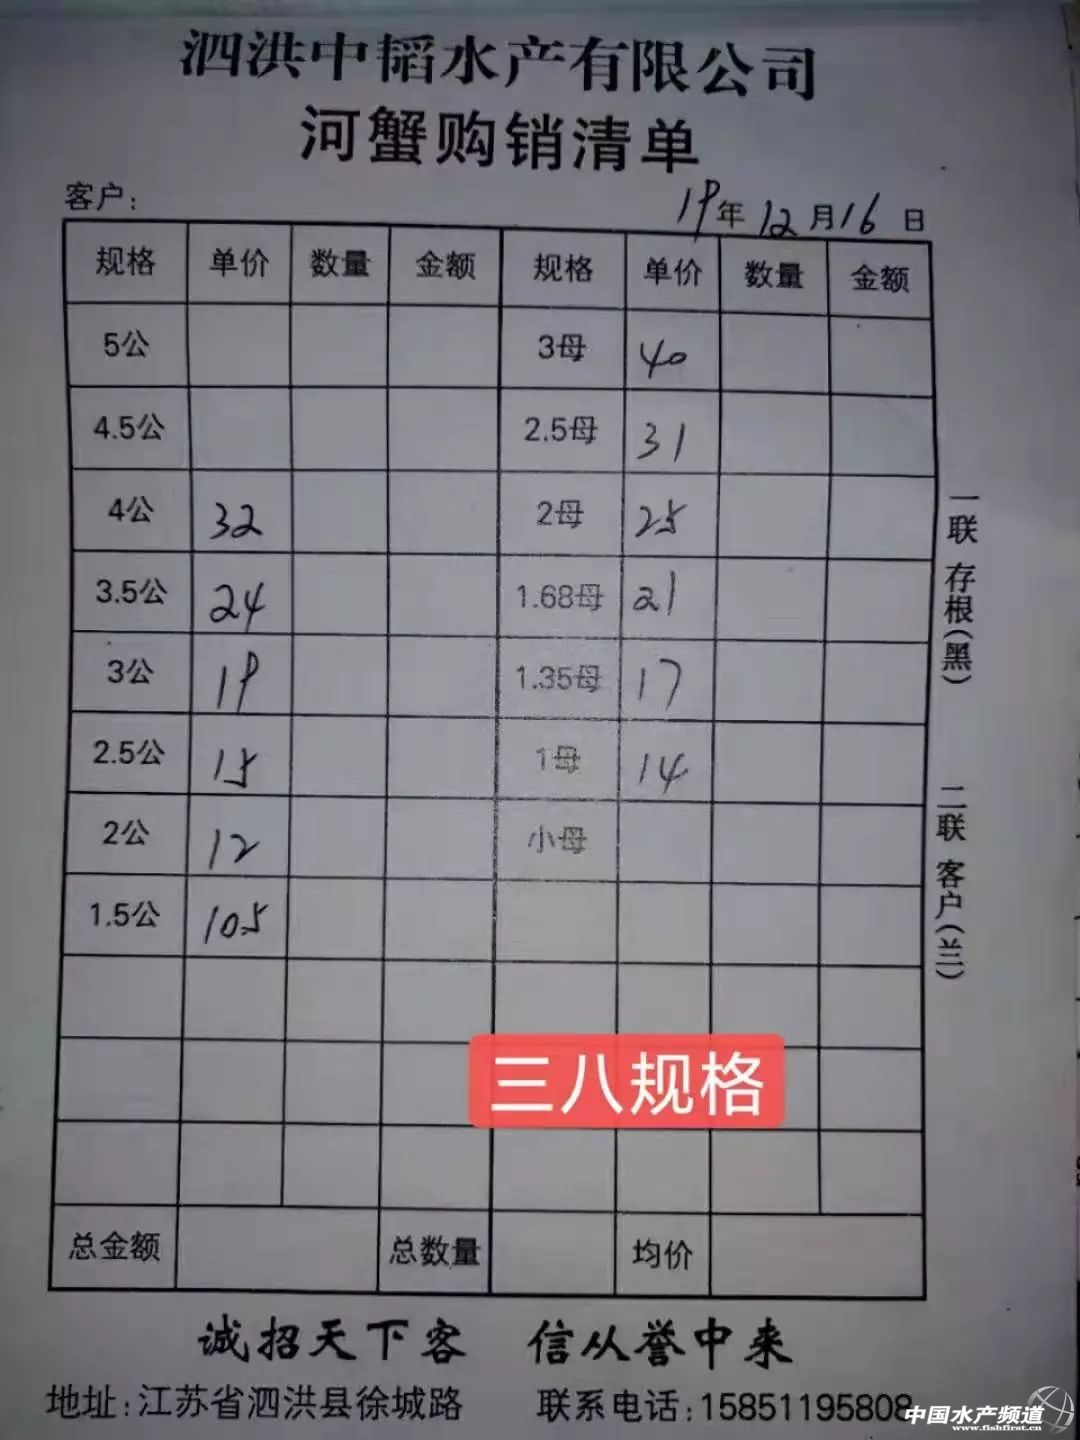 泗洪中韬水产有限公司
河蟹购销清单
客户: 19年12月16日
规格 单价 数量 金额 规格 单价 数量 金额
5公 3母 40
4.5公 2.5母 31
4公 32 2母 25
3.5公 24 1.68母 21
3公 19 1.35母 17
2.5公 15 1母 14
2公 12 小母
1.5公 10.5
一联 存根(黑)
二联 客户(兰)
三八规格
总金额 总数量 均价
诚招天下客 信从誉中来
地址:江苏省泗洪县徐城路 联系电话:15851195808
中国水产频道
www.fishfirst.cn